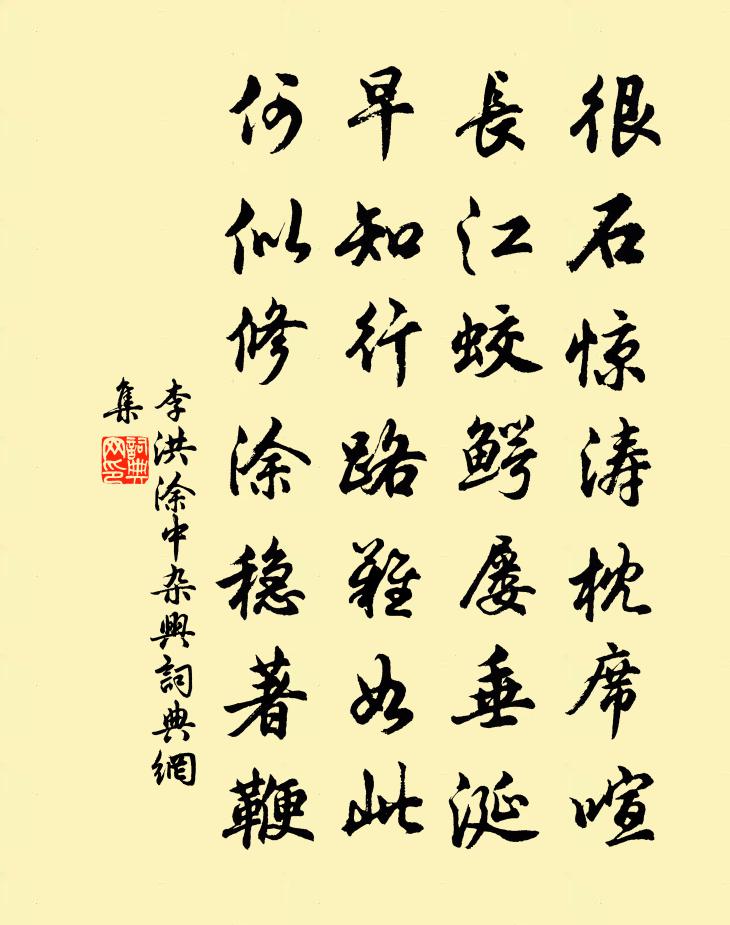 很石惊涛枕席喧
長江蛟鳄屡垂涎
早知行路難如此
何似修涂穏著鞭
李洪涂中杂興詞典網
集
詞典網印